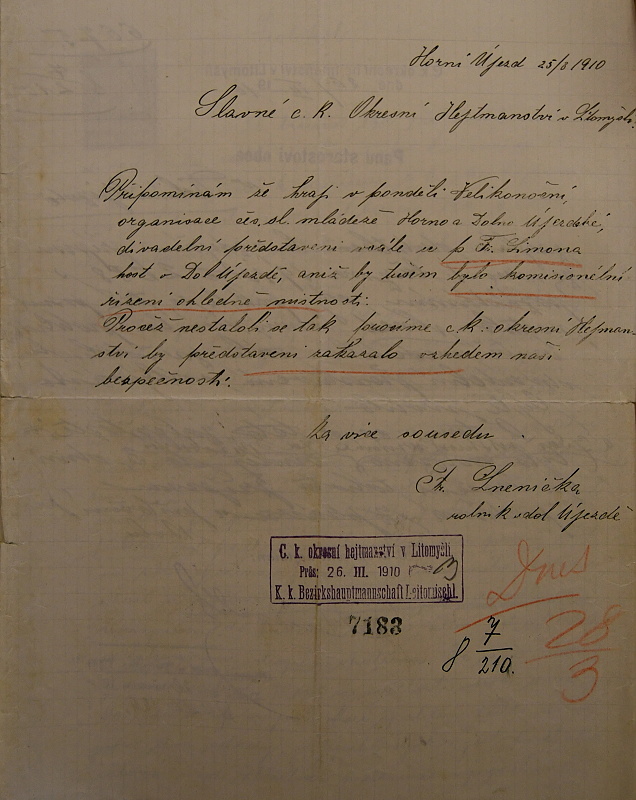 Horní Újezd 25/3 1910
Slavné c. k. Okresní Hejtmanství v Litomyšli.
Připomínám že hrají v pondělí Velikonoční,
organisace čes. sl. mládeže Horno a Dolno Újezdské,
divadelní představení v sále u p. Fr. Šimona
host. v Dol Újezdě, aniž by tuším bylo komisionelní
řízení ohledně místnosti.
Pročež nestaloli se tak prosíme c. k. okresní Hejtman-
ství by představení zakázalo vzhledem naší
bezpečnosti.
Za více sousedu
Fr. Lnenička
rolník v dol Újezdě
C. k. okresní hejtmanství v Litomyšli
Präs: 26. III. 1910
K. k. Bezirkshauptmannschaft Leitomischl.
7183
Dnes
28
3
8 7
210.